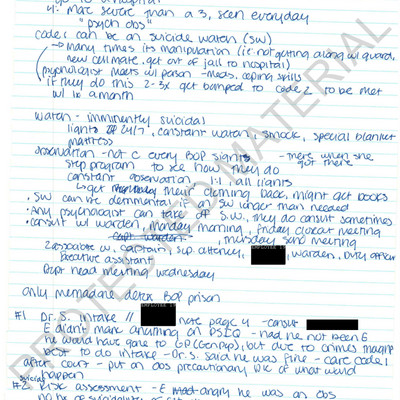 4: more severe than a 3, seen everyday
"psych obs"
code 1 can be an suicide watch (SW)
many times its manipulation (ie: not getting along w/ guard,
new cellmate, get out of jail to hospital)
psychologist meets w/ person - meds, coping skills
if they do this 2-3x get bumped to code 2 to be met
w/ 1x a month
watch - imminently suicidal
lights 24/7, constant watch, smock, special blanket
mattress
observation - not @ every BOP sights - there when she
got there
step program to see how they do
constant observation, 1:1, all lights
get their clothing back, might get books
SW can be detrimental on SW longer than needed
Any psychologist can take off S.W., they do consult sometimes
consult w/ warden, Monday morning, Friday closeout meeting
, Thursday SHU meeting
associate w, captain, sup. attorney, warden, duty officer
executive assistant
Dept head meeting Wednesday
only metadone detox BOP prison
#1 Dr. S. intake // note page 4 - consult
E didn't mark anything on PSIQ - had he not been E
he would have gone to GP (Genpop), but due to crimes
best to do intake - Dr. S. said he was fine - care code 1
after court - put on obs precautionary b/c of what would
happen
#2 suicide Risk assessment - E